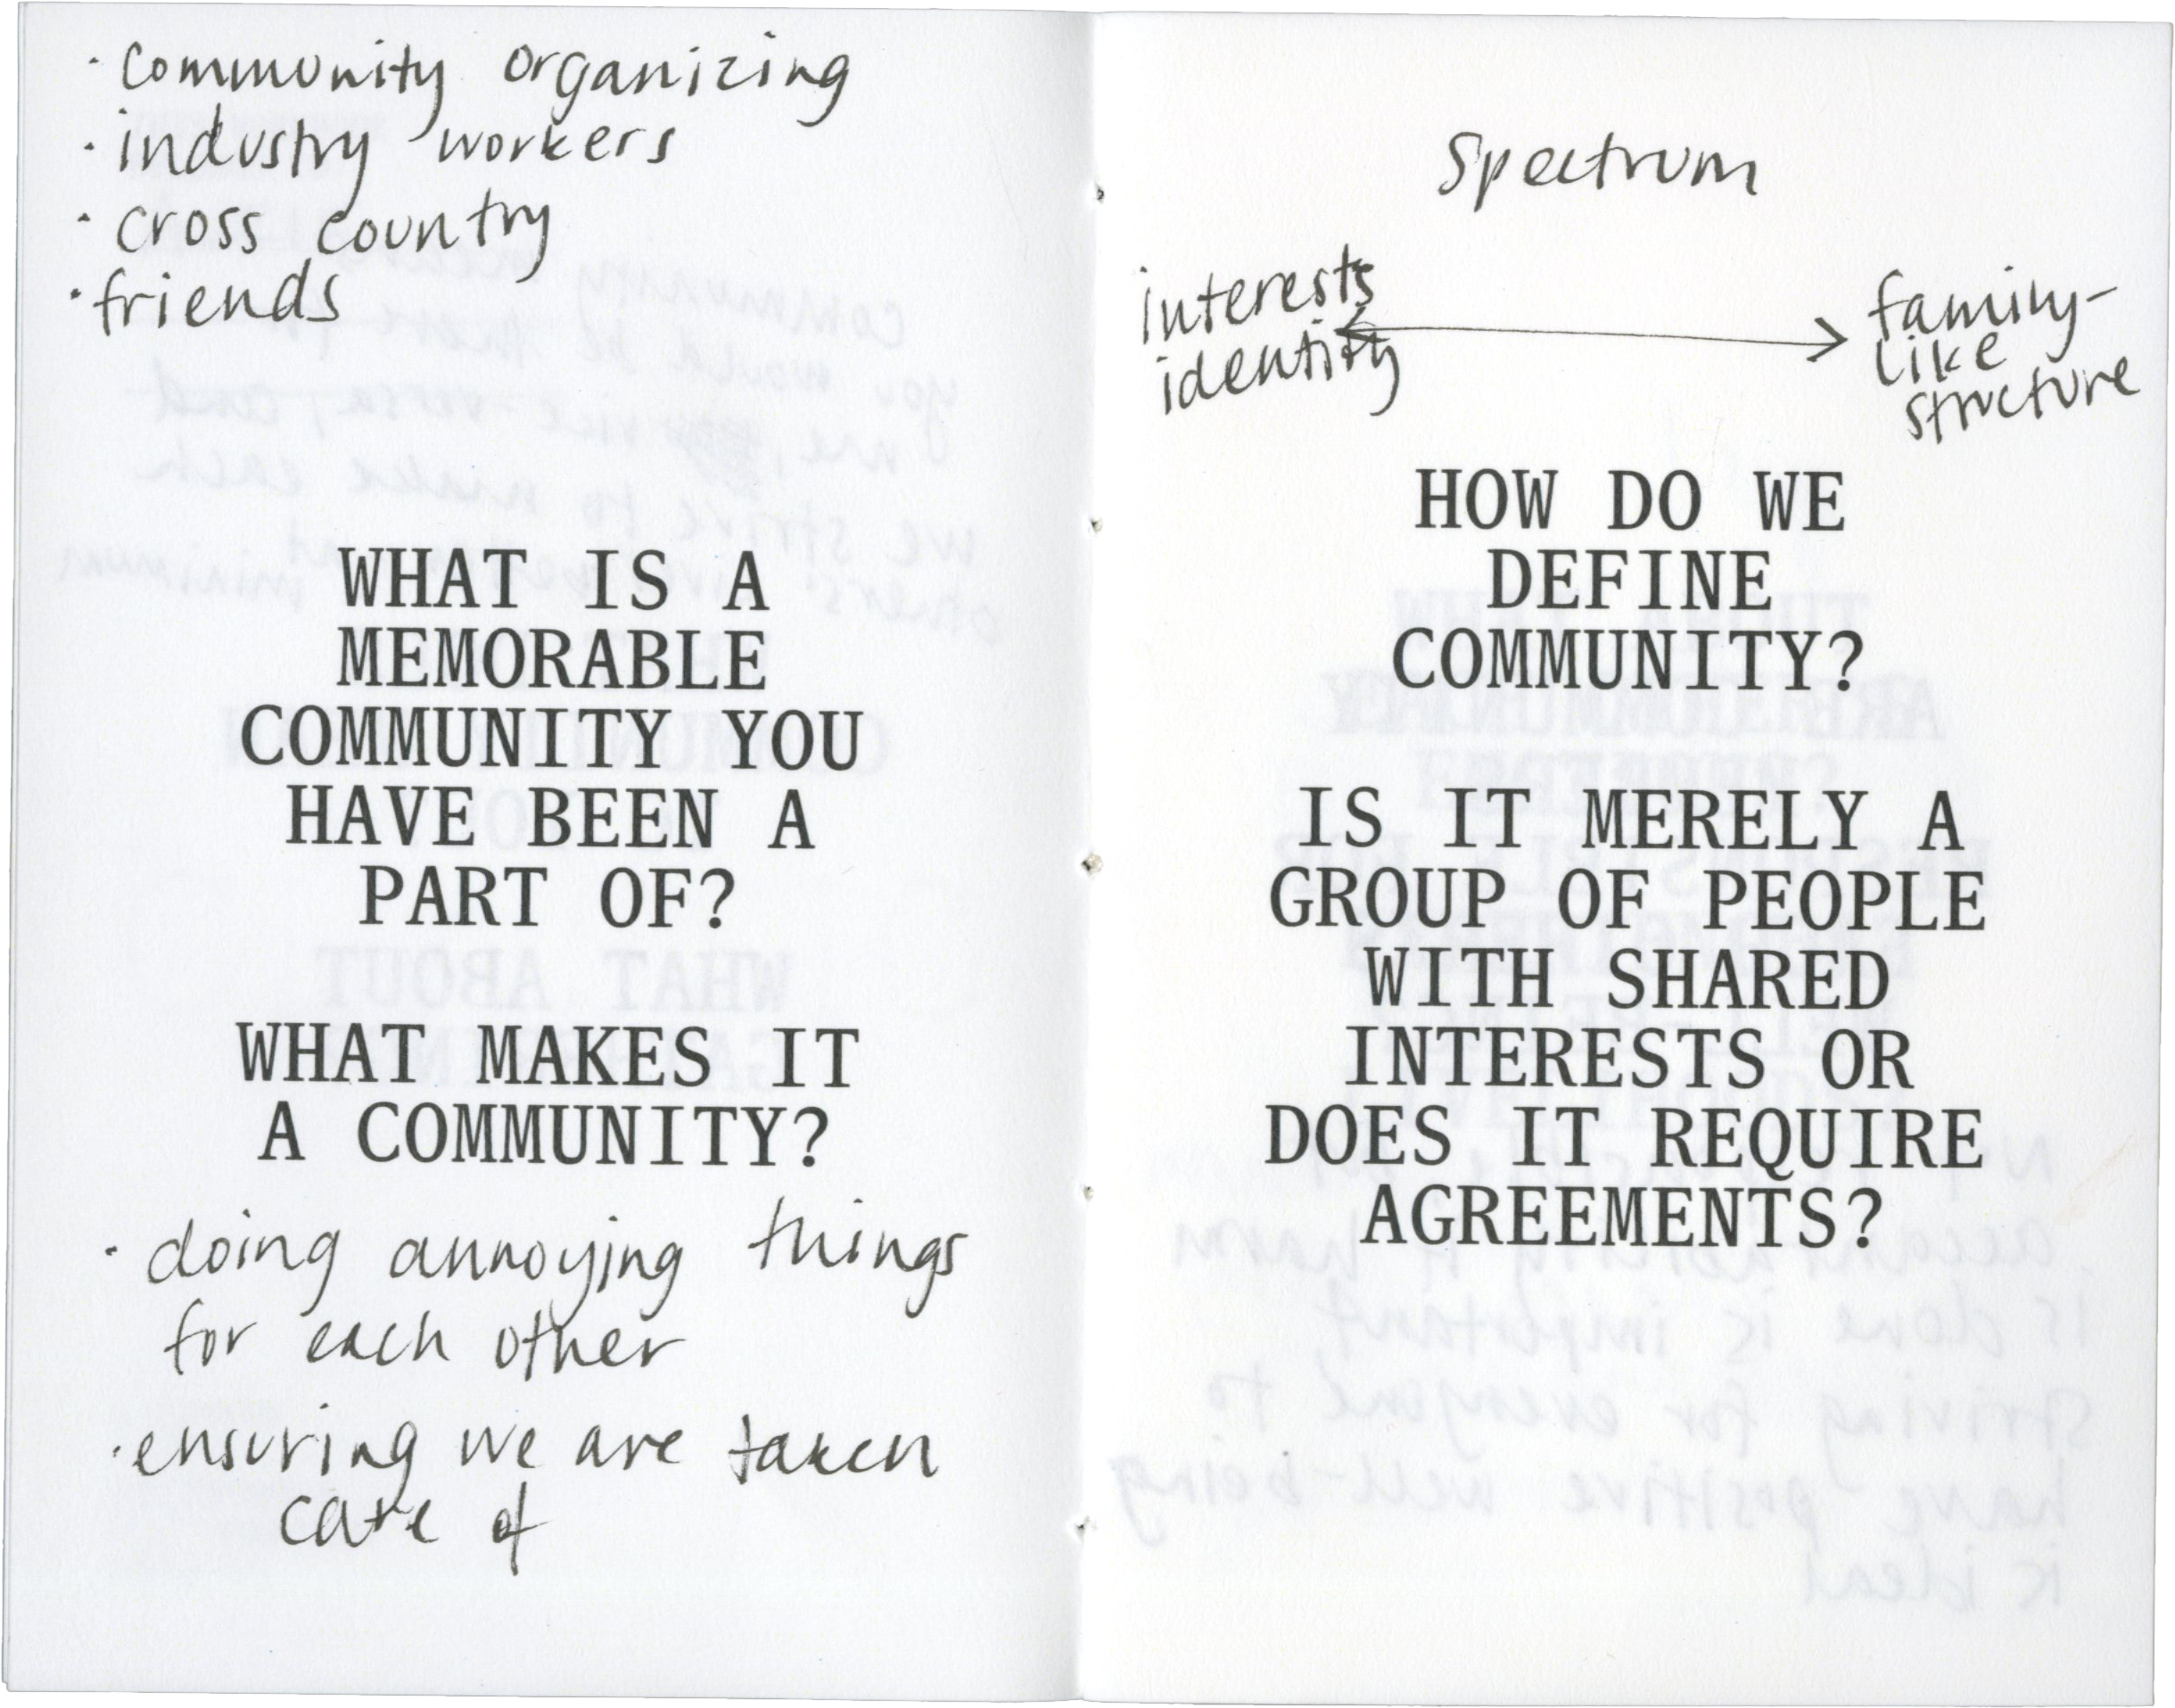 · community organizing
· industry workers
· cross country
· friends
WHAT IS A
MEMORABLE
COMMUNITY YOU
HAVE BEEN A
PART OF?
WHAT MAKES IT
A COMMUNITY?
· doing annoying things
for each other
· ensuring we are taken
care of
Spectrum
interests
identity
family-
like
structure
HOW DO WE
DEFINE
COMMUNITY?
IS IT MERELY A
GROUP OF PEOPLE
WITH SHARED
INTERESTS OR
DOES IT REQUIRE
AGREEMENTS?